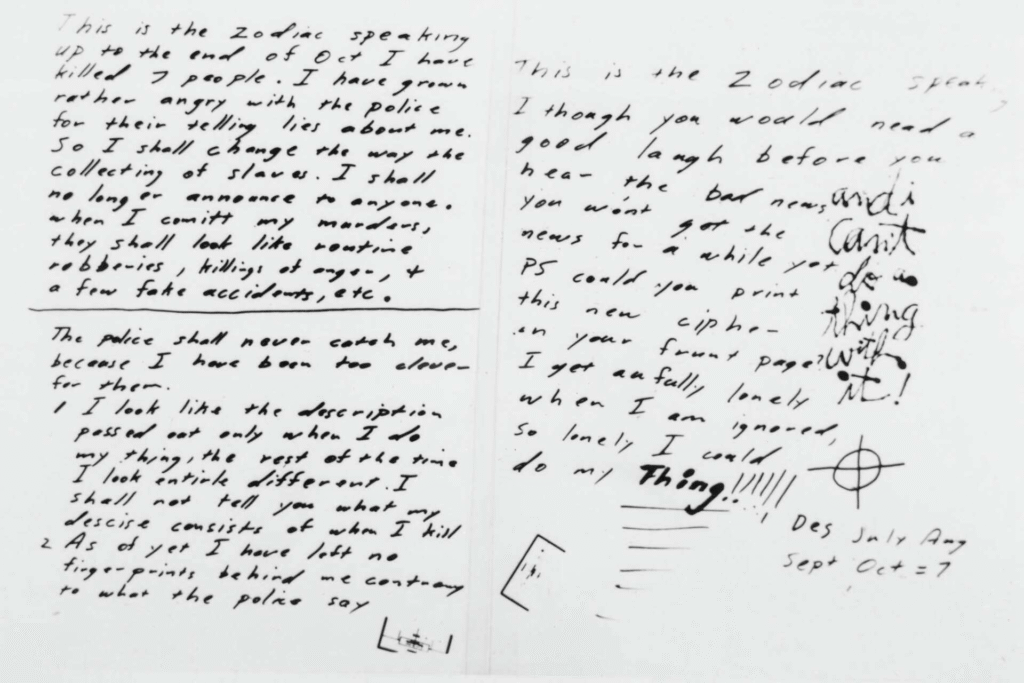 This is the Zodiac speaking
up to the end of Oct I have
killed 7 people. I have grown
rather angry with the police
for their telling lies about me.
So I shall change the way the
collecting of slaves. I shall
no longer announce to anyone.
when I comitt my murders,
they shall look like routine
robberies, killings of anger, +
a few fake accidents, etc.
The police shall never catch me,
because I have been too clever
for them.
1 I look like the description
passed out only when I do
my thing, the rest of the time
I look entirle different. I
shall not tell you what my
descise consists of when I kill
2 As of yet I have left no
fingerprints behind me contrary
to what the police say
This is the Zodiac speak
I though you would need a
good laugh before you
hear the bad news
you won't get the
news for a while yet
PS could you print
this new cipher
in your frunt page?
I get aufully lonely
when I am ignored,
so lonely I could
do my Thing!!!!!!
and i
can't
do a
thing
with
it!
Des July Aug
Sept Oct = 7